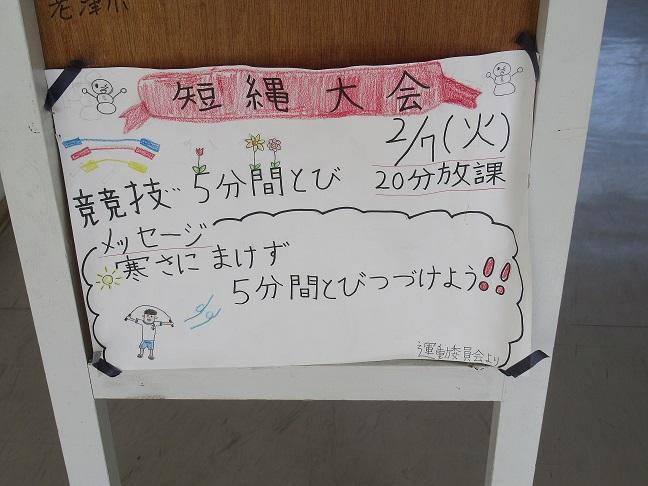 短縄大会
2/7(火)
20分放課
競技…5分間とび
メッセージ
寒さにまけず
5分間とびつづけよう!!
運動委員会より